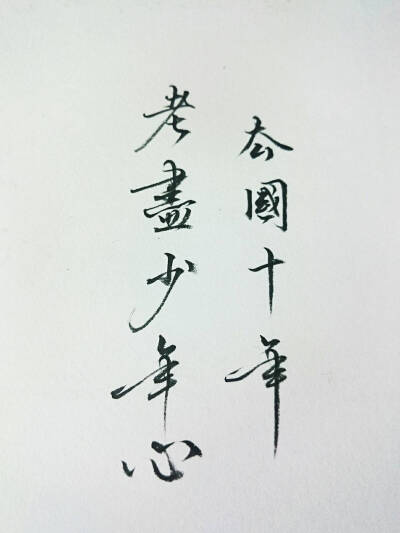 去國十年
老盡少年心